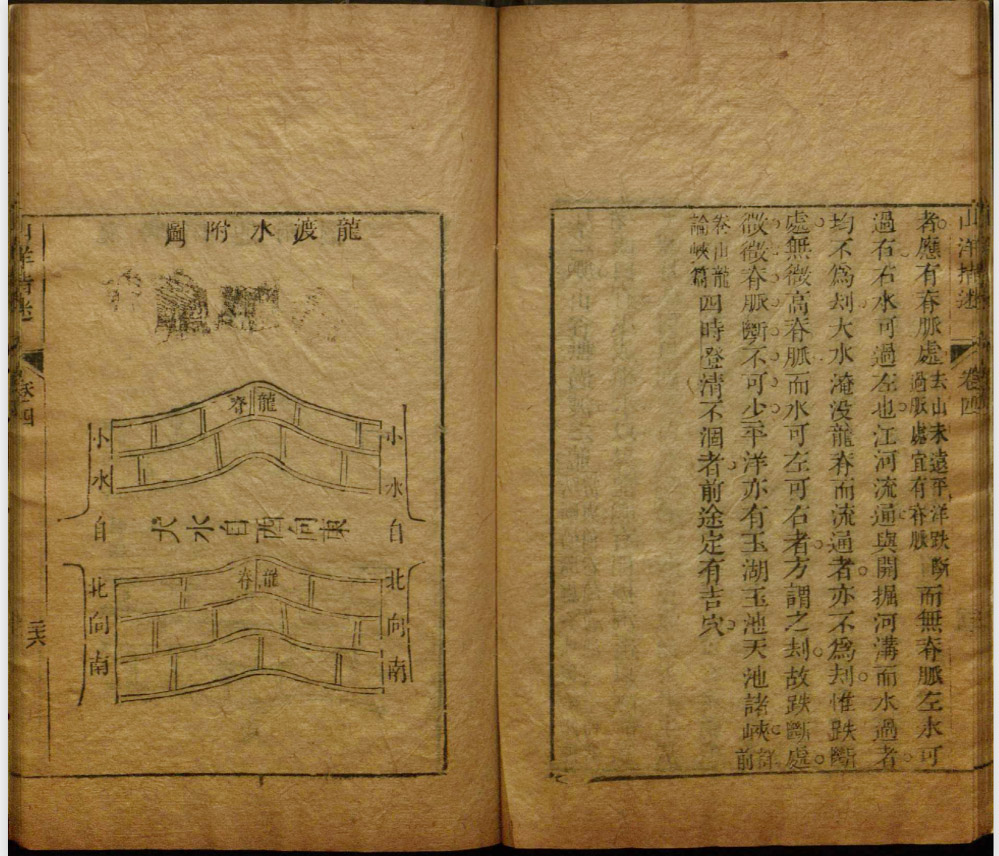 山洋指迷
卷四
者應有脊脈處去山未遠平洋跌斷過脈處宜有脊脈而無脊脈左水可
過右右水可過左也江河流通與開掘河溝而水過者
均不爲刦大水淹没龍脊而流通者亦不爲刦惟跌斷
處無微高脊脈而水可左可右者方謂之刦故跌斷處
微微脊脈斷不可少平洋亦有玉湖玉池天池諸峽詳前
卷山龍論峽篇四時澄清不涸者前途定有吉穴
龍渡水附圖
龍脊
小水自北向南
大水自西向東
龍脊
小水自北向南
山洋指迷
卷四
二六